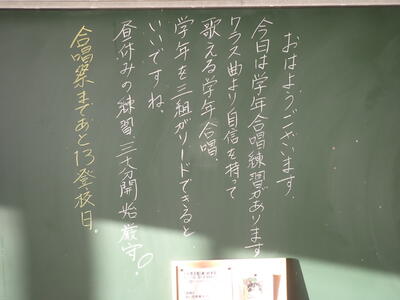 おはようございます。
今日は学年合唱練習があります
クラス曲より自信を持って
歌える学年合唱、
学年を三組がリードできると
いいですね。
昼休みの練習、三七分開始厳守。
合唱祭まであと13登校日。